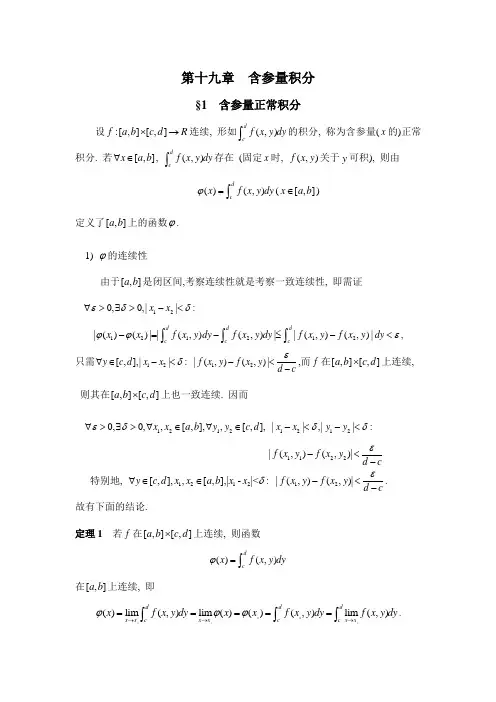 第十九章 含参量积分
§1 含参量正常积分
设 f:[a,b]×[c,d]→R 连续, 形如∫_c^d f(x,y)dy 的积分, 称为含参量(x 的)正常
积分. 若∀x∈[a,b], ∫_c^d f(x,y)dy 存在 (固定 x 时, f(x,y) 关于 y 可积), 则由
φ(x)=∫_c^d f(x,y)dy (x∈[a,b])
定义了[a,b]上的函数φ.
1) φ的连续性
由于[a,b]是闭区间,考察连续性就是考察一致连续性, 即需证
∀ε>0,∃δ>0,|x₁−x₂|<δ:
|φ(x₁)−φ(x₂)|=|∫_c^d f(x₁,y)dy−∫_c^d f(x₂,y)dy|≤∫_c^d |f(x₁,y)−f(x₂,y)|dy<ε,
只需∀y∈[c,d],|x₁−x₂|<δ: |f(x₁,y)−f(x₂,y)|<ε/(d−c),而 f 在[a,b]×[c,d]上连续,
则其在[a,b]×[c,d]上也一致连续. 因而
∀ε>0,∃δ>0,∀x₁,x₂∈[a,b],∀y₁,y₂∈[c,d], |x₁−x₂|<δ,|y₁−y₂|<δ:
|f(x₁,y₁)−f(x₂,y₂)|<ε/(d−c)
特别地, ∀y∈[c,d],x₁,x₂∈[a,b],|x₁-x₂|<δ: |f(x₁,y)−f(x₂,y)|<ε/(d−c).
故有下面的结论.
定理1 若 f 在[a,b]×[c,d]上连续, 则函数
φ(x)=∫_c^d f(x,y)dy
在[a,b]上连续, 即